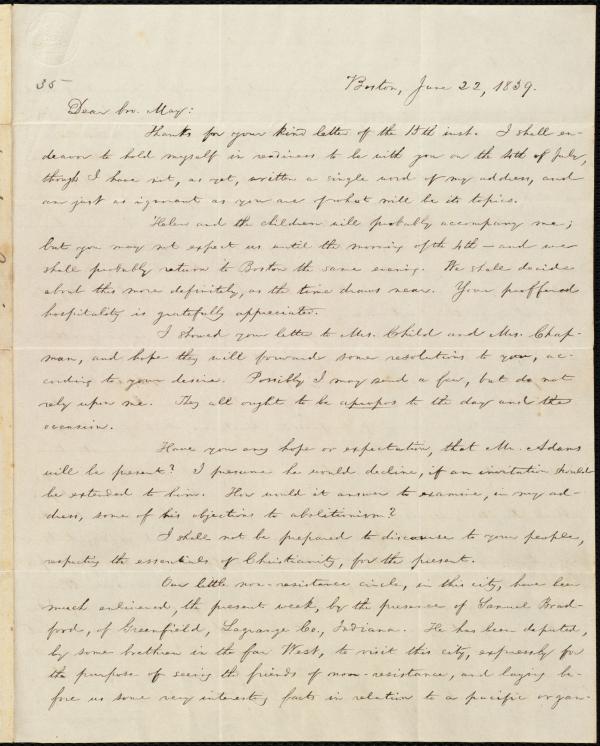 35
Boston, June 22, 1839.
Dear bro. May:
Thanks for your kind letter of the 15th inst. I shall en-
deavor to hold myself in readiness to be with you on the 4th of July,
though I have not, as yet, written a single word of my address, and
am just as ignorant as you are of what will be its topics.
Helen and the children will probably accompany me;
but you may not expect us until the morning of the 4th — and we
shall probably return to Boston the same evening. We shall decide
about this more definitely, as the time draws near. Your proffered
hospitality is gratefully appreciated.
I showed your letter to Mrs. Child and Mrs. Chap-
man, and hope they will forward some resolutions to you, ac-
cording to your desire. Possibly I may send a few, but do not
rely upon me. They all ought to be apropos to the day and the
occasion.
Have you any hope or expectation, that Mr. Adams
will be present? I presume he would decline, if an invitation should
be extended to him. How would it answer to examine, in my ad-
dress, some of his objections to abolitionism?
I shall not be prepared to discourse to your people,
respecting the essentials of Christianity, for the present.
Our little non-resistance circle, in this city, have been
much enlivened, the present week, by the presence of Samuel Brad-
ford, of Greenfield, Lagrange Co., Indiana. He has been deputed,
by some brethren in the far West, to visit this city, expressly for
the purpose of seeing the friends of non-resistance, and laying be-
fore us some very interesting facts in relation to a pacific organ-